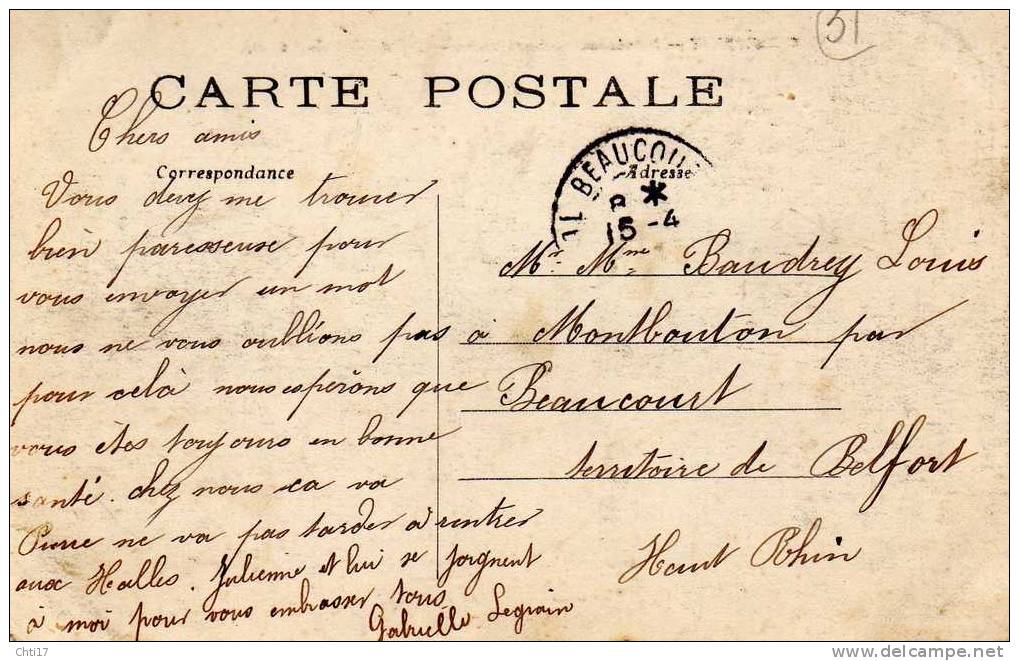 31
CARTE POSTALE
Chers amis
Correspondance
Vous devez me trouver
bien paresseuse pour
vous envoyer un mot
nous ne vous oublions pas
pour celà nous espérons que
vous êtes toujours en bonne
santé. chez nous ca va
Pierre ne va pas tarder à rentrer
aux Halles. Julienne et lui se joignent
à moi pour vous embrasser tous
Gabrielle Legrain
BEAUCOU
Adresse
8 *
15-4
Mr Mme Baudrey Louis
à Montbouton par
Beaucourt
territoire de Belfort
Haut Rhin
Chti17